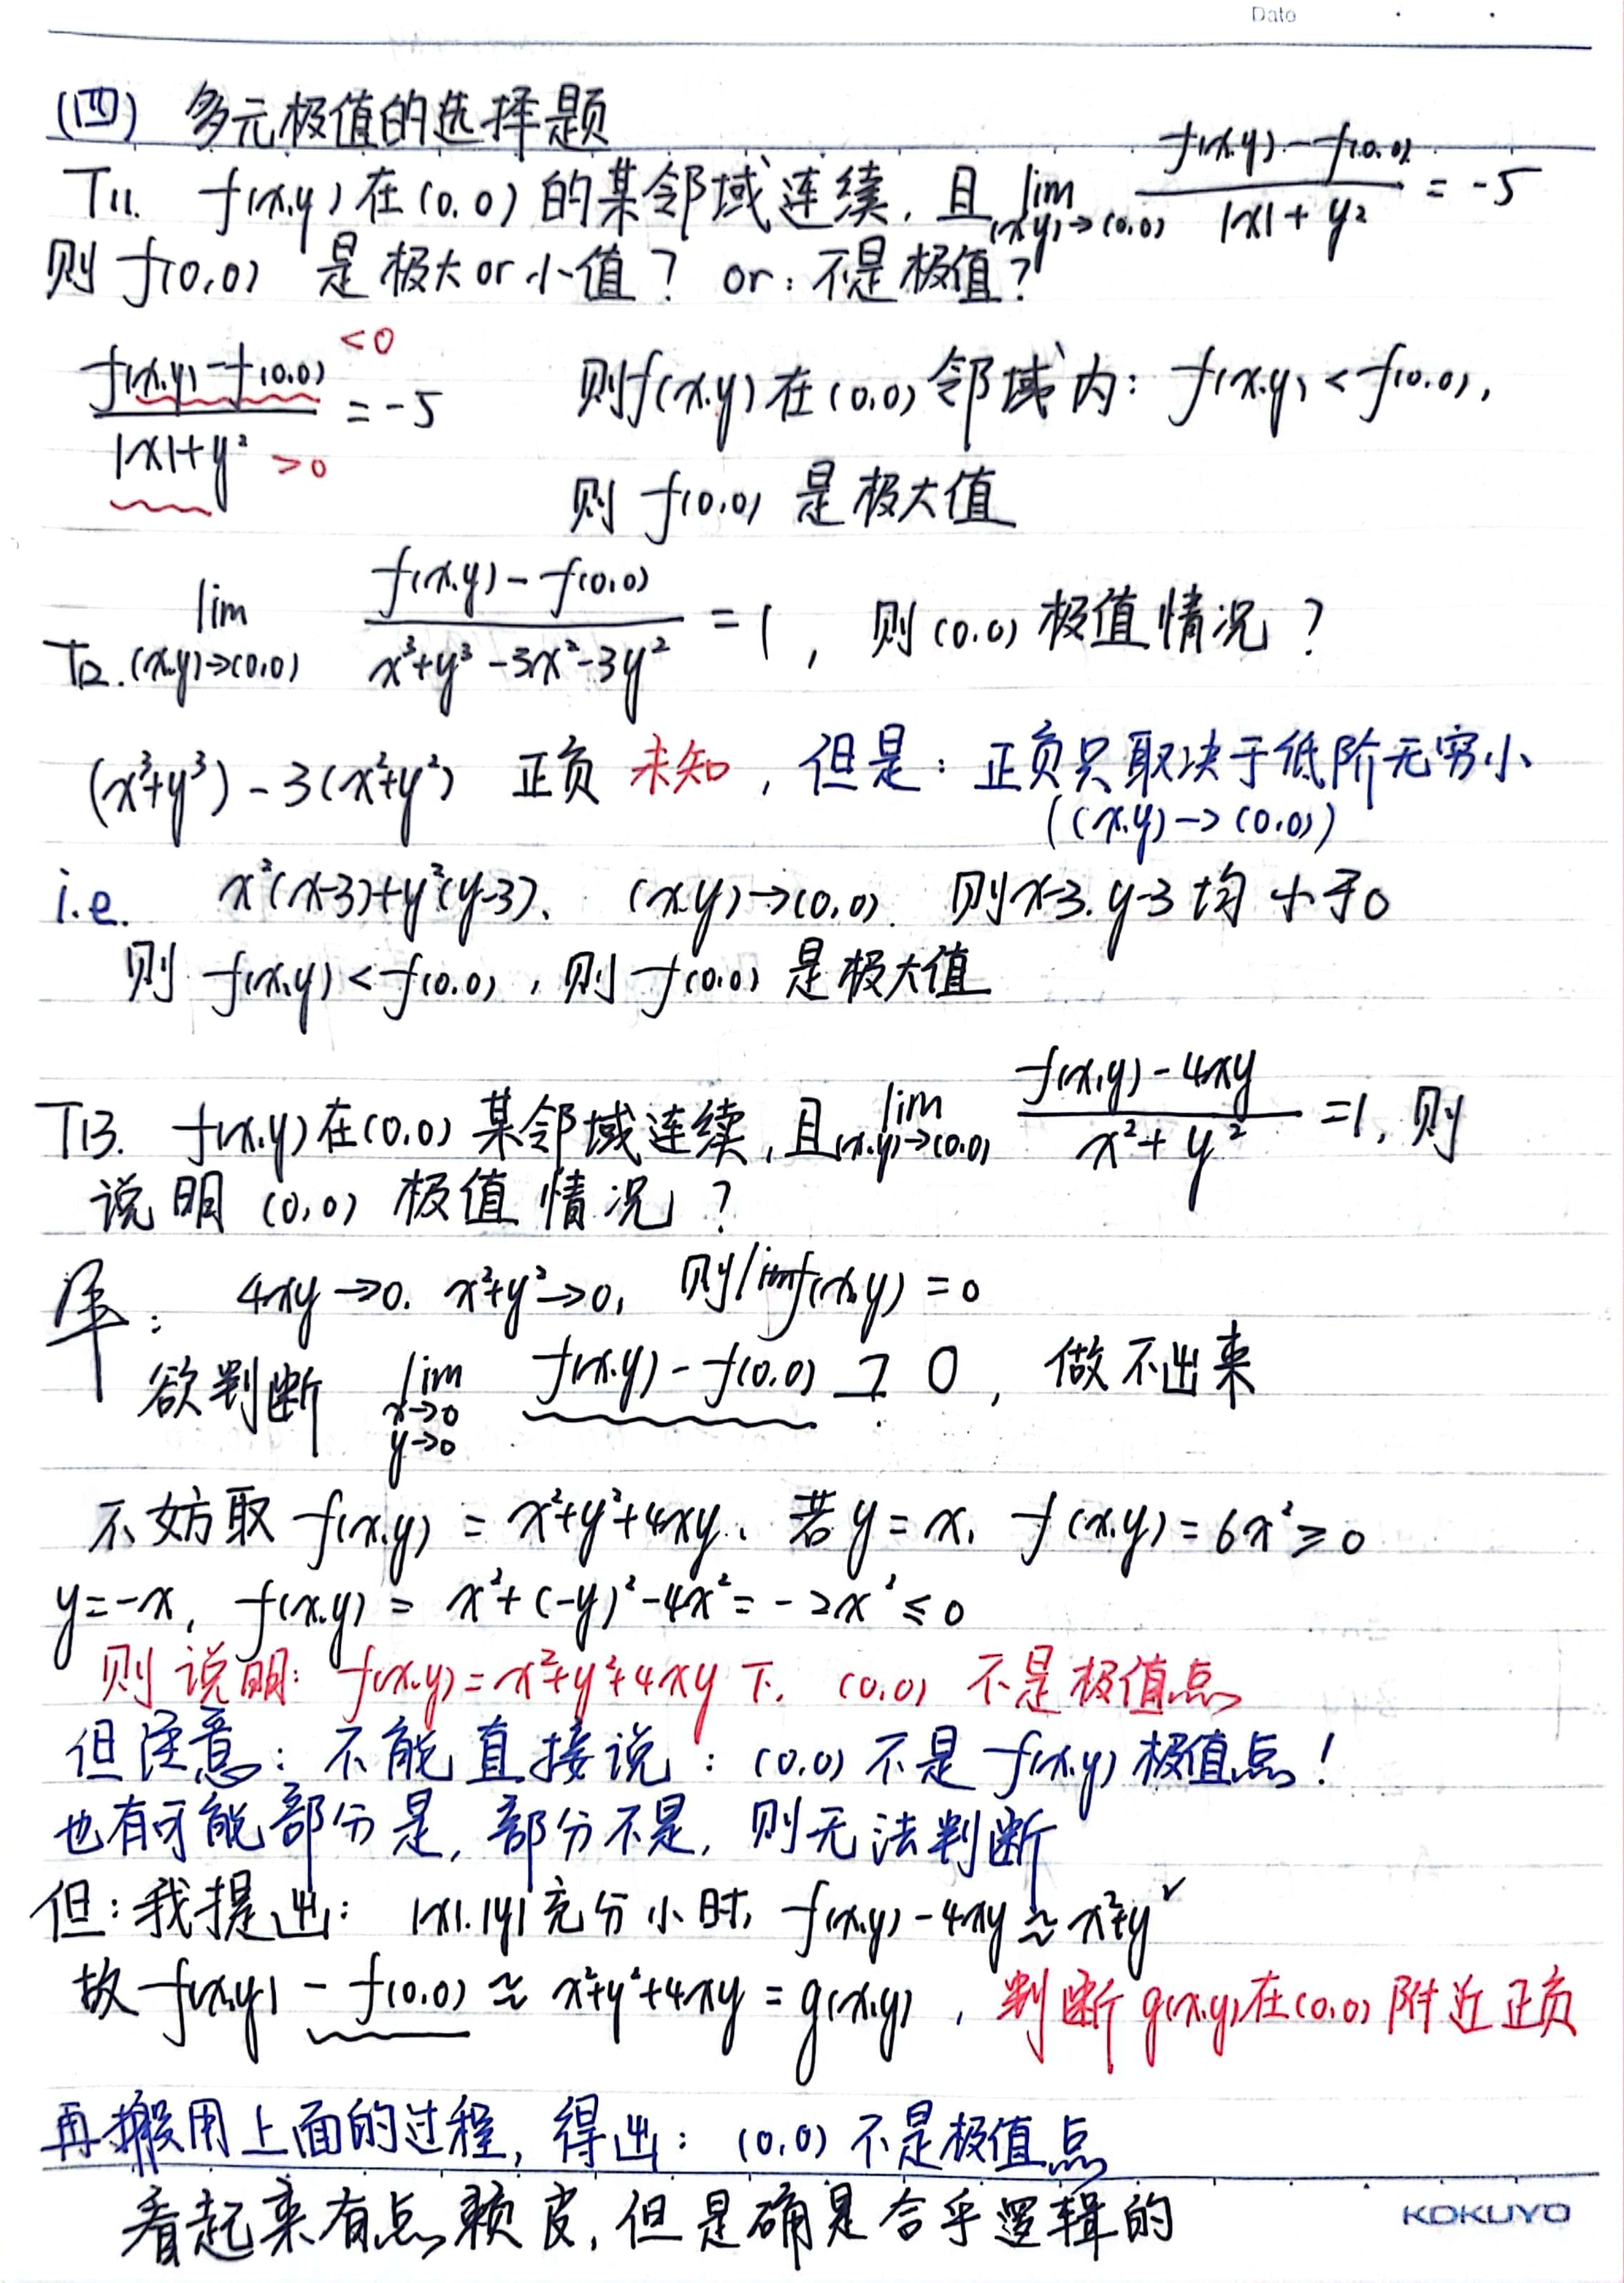 Date
(四) 多元极值的选择题
T11. f(x,y)在(0,0)的某邻域连续,且 lim (x,y)→(0,0) f(x,y)-f(0,0) / |x|+y² = -5
则 f(0,0) 是极大or小值? or:不是极值?
f(x,y)-f(0,0) <0 / |x|+y² >0 = -5 则f(x,y)在(0,0)邻域内: f(x,y)<f(0,0),
则 f(0,0) 是极大值
T12. lim (x,y)→(0,0) f(x,y)-f(0,0) / x³+y³-3x²-3y² = 1, 则(0,0)极值情况?
(x³+y³)-3(x²+y²) 正负未知,但是:正负只取决于低阶无穷小
((x,y)→(0,0))
i.e. x²(x-3)+y²(y-3). (x,y)→(0,0). 则x-3.y-3均小于0
则 f(x,y)<f(0,0),则 f(0,0) 是极大值
T13. f(x,y)在(0,0)某邻域连续,且 lim (x,y)→(0,0) f(x,y)-4xy / x²+y² =1,则
说明(0,0)极值情况?
: 4xy→0. x²+y²→0, 则lim f(x,y)=0
欲判断 lim x→0 y→0 f(x,y)-f(0,0) 0, 做不出来
不妨取 f(x,y)=x²+y²+4xy. 若y=x, f(x,y)=6x²≥0
y=-x, f(x,y)= x²+(-y)²-4x²=-2x²≤0
则说明: f(x,y)=x²+y²+4xy下. (0,0) 不是极值点
但注意:不能直接说:(0,0)不是f(x,y)极值点!
也有可能部分是,部分不是,则无法判断
但:我提出: |x|.|y|充分小时, f(x,y)-4xy≈x²+y²
故 f(x,y)-f(0,0)≈x²+y²+4xy=g(x,y),判断g(x,y)在(0,0)附近正负
再搬用上面的过程,得出:(0,0)不是极值点
看起来有点赖皮,但是确是合乎逻辑的
KOKUYO